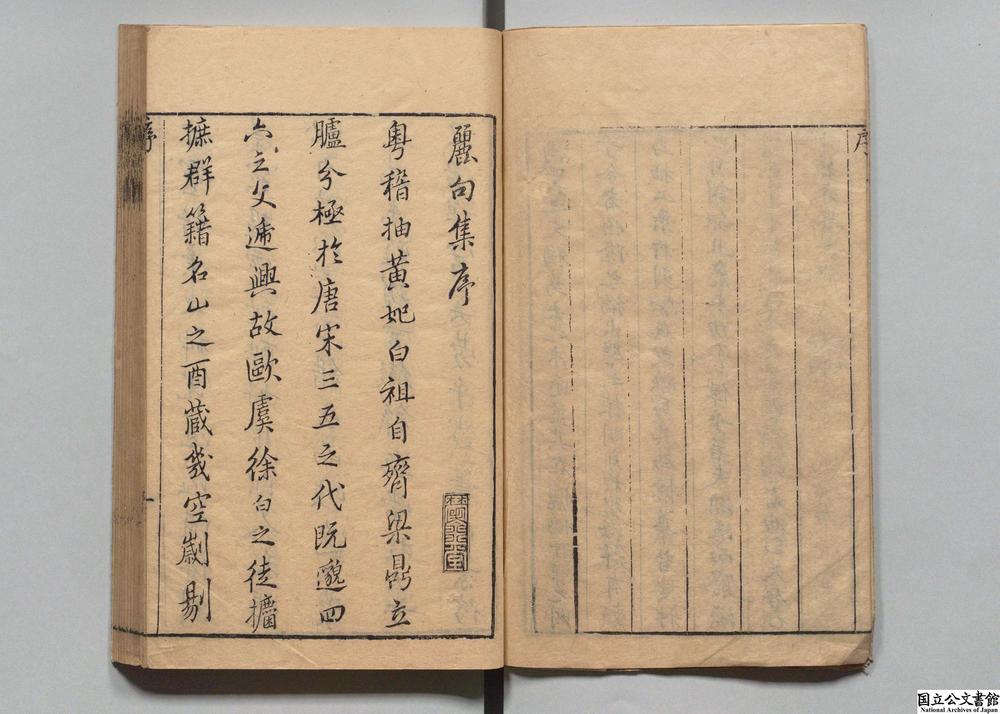 序
麗句集序
粵稽抽黃妃白祖自齊梁鼎立
臚分極於唐宋三五之代既邈四
六之文遞興故歐虞徐白之徒攟
摭群籍名山之酉藏幾空劌剔
序
国立公文書館
National Archives of Japan